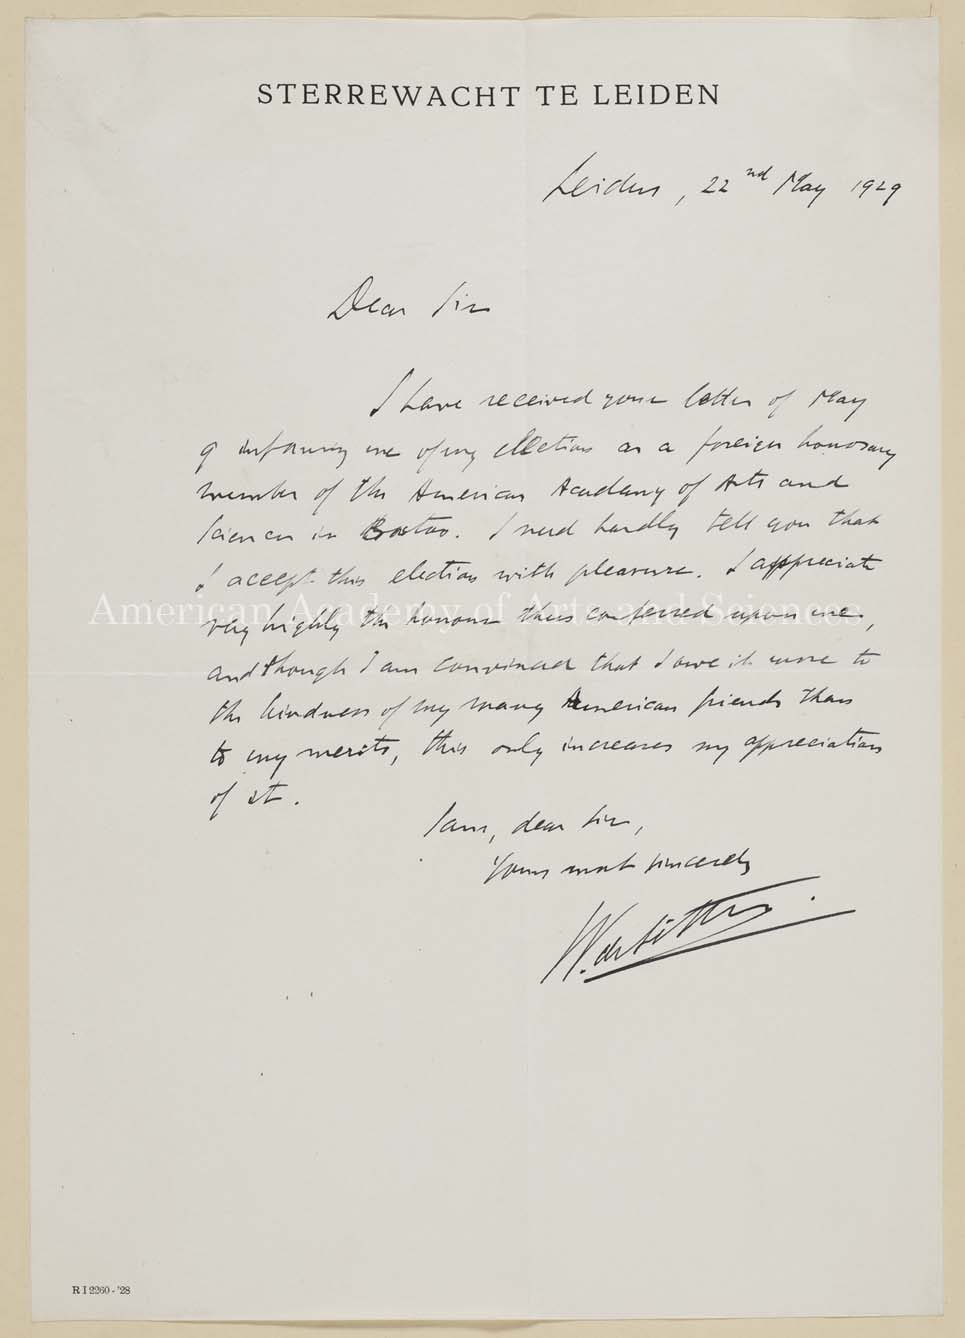 STERREWACHT TE LEIDEN
Leiden, 22nd May 1929
Dear Sir
I have received your letter of May
9 informing me of my election as a foreign honorary
member of the American Academy of Arts and
Sciences in Boston. I need hardly tell you that
I accept this election with pleasure. I appreciate
American Academy of Arts and Sciences
very highly the honour thus conferred upon me,
and though I am convinced that I owe it more to
the kindness of my many American friends than
to my merits, this only increases my appreciation
of it.
I am, dear Sir,
Yours most sincerely
W. de Sitter.
R I 2260 - '28